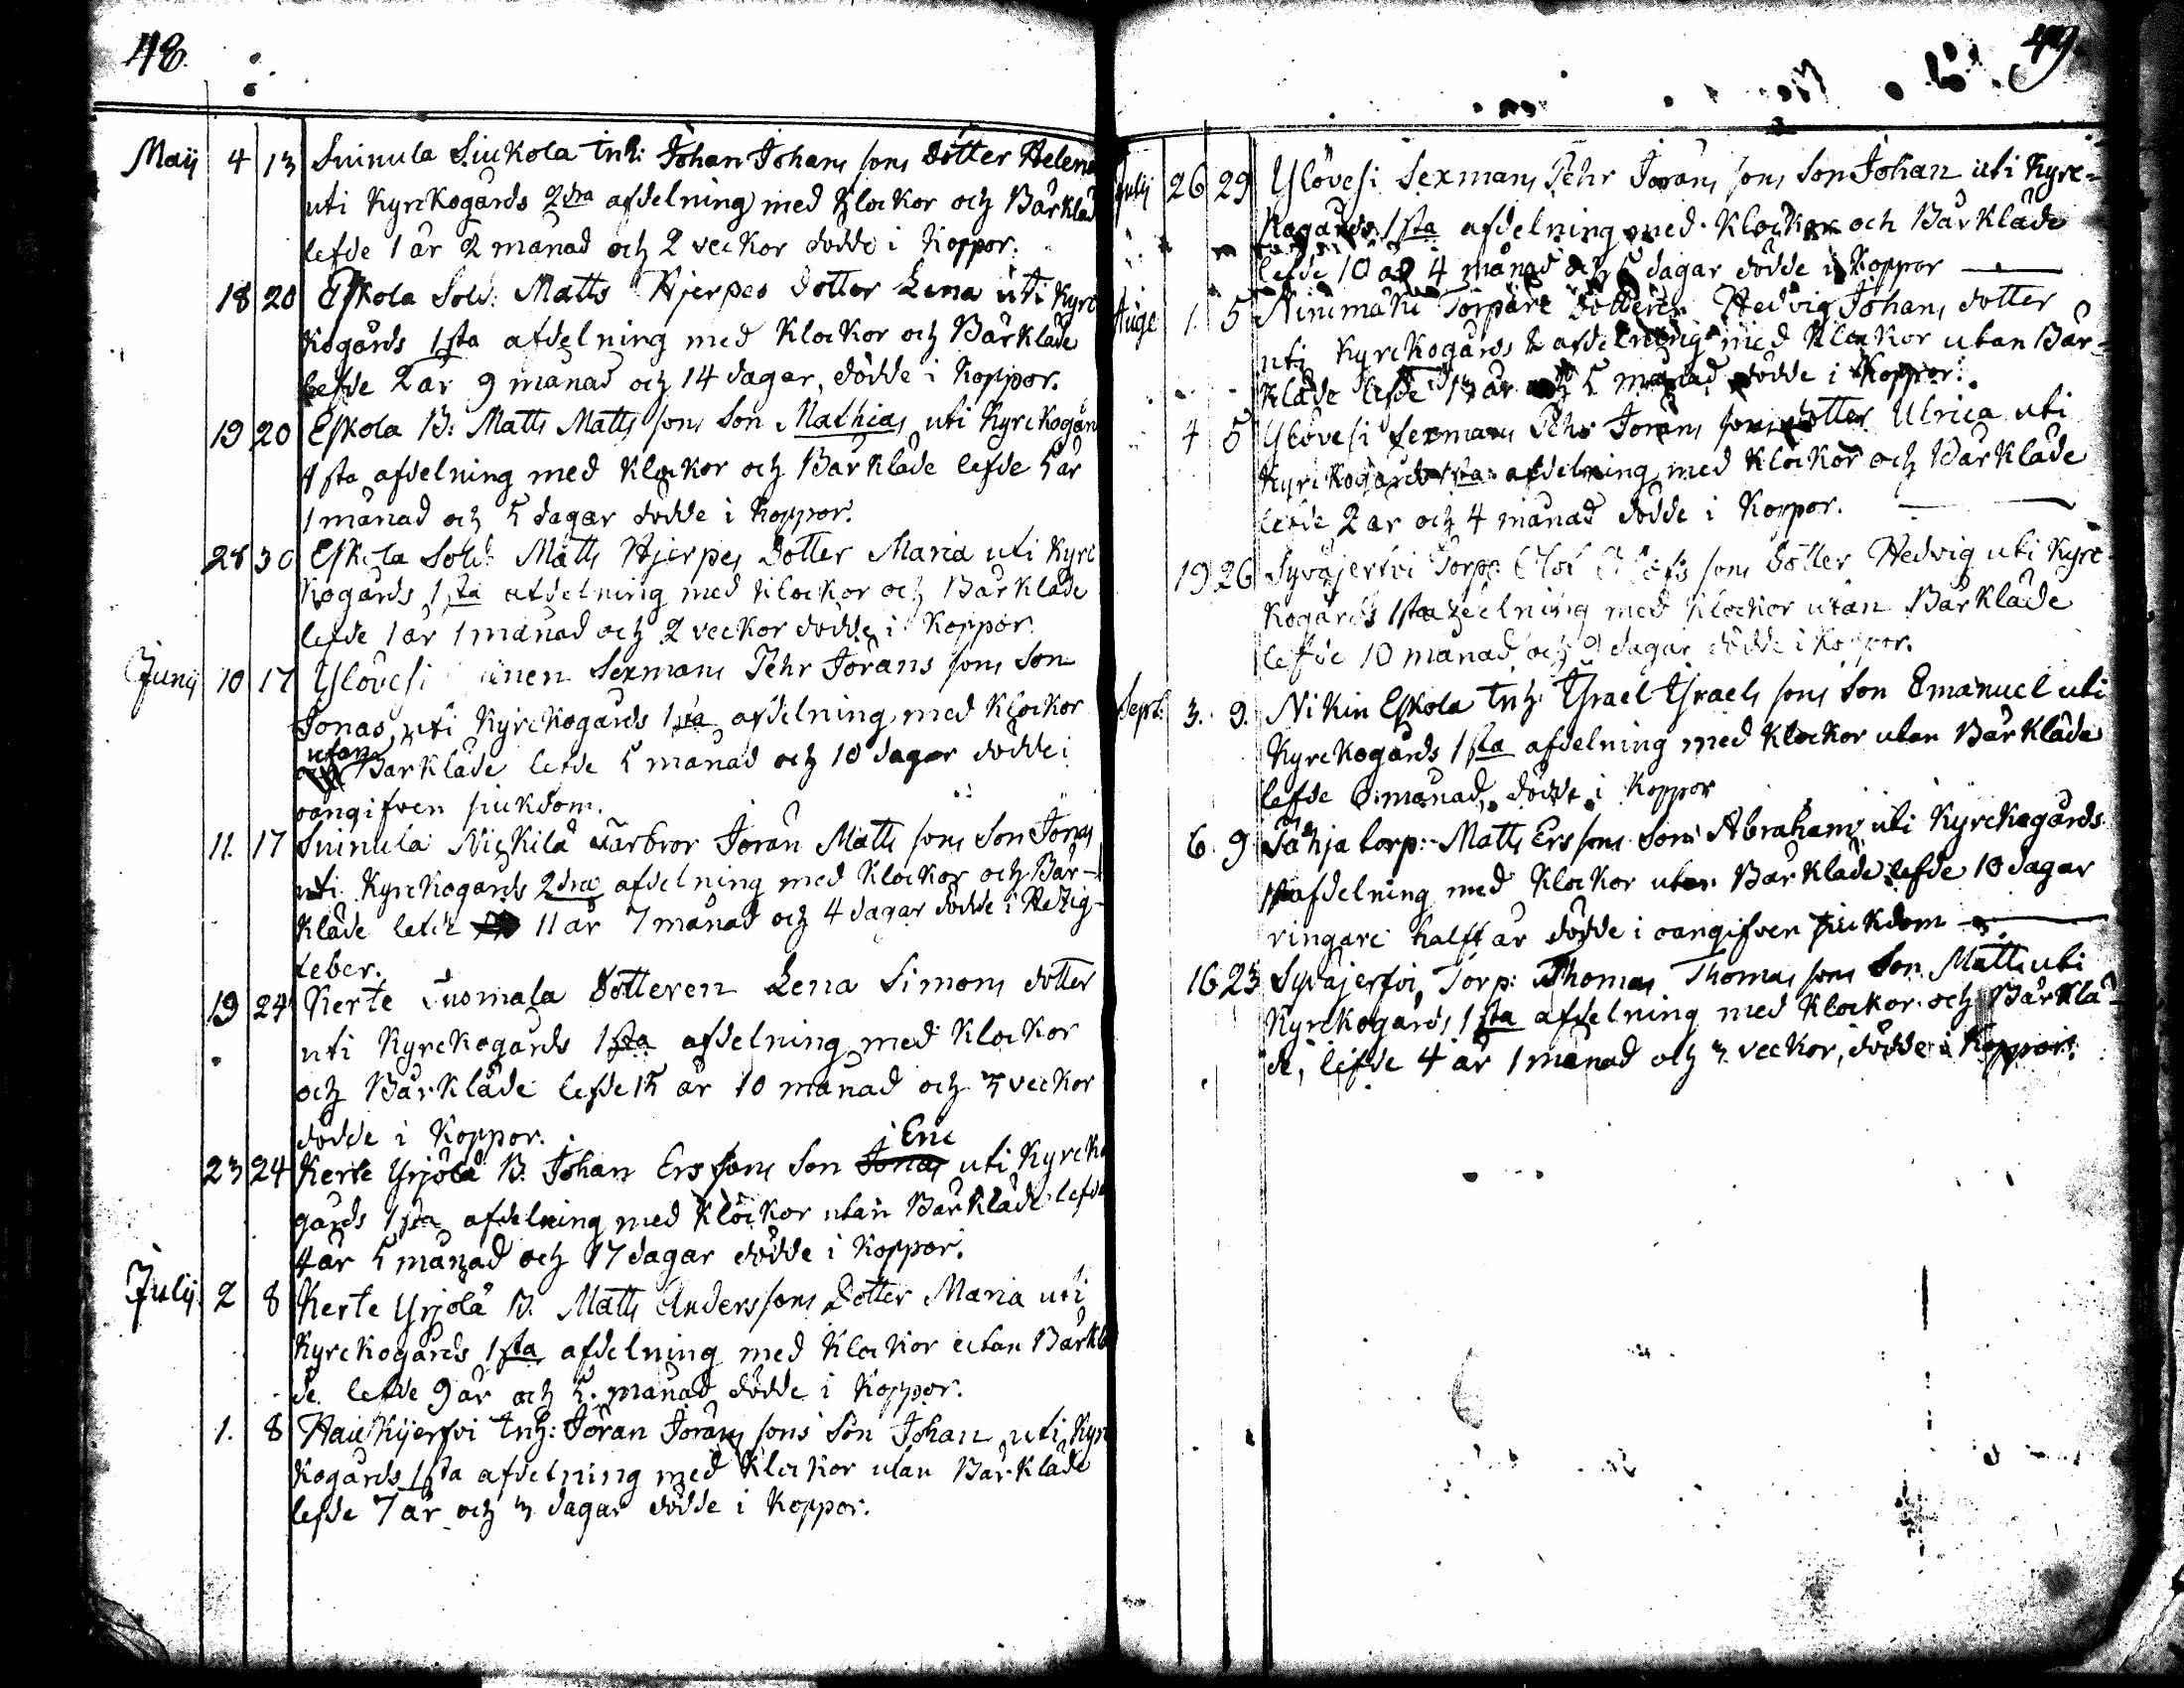 48.
Maij 4 13 Suinula Siukola Inh: Johan Johans sons dotter Helena
uti Kyrckogårds 2dra afdelning med Klockor och Bårkläd
lefde 1 år 2 månad och 2 veckor dödde i Koppor.
18 20 Eskola Sold: Matts Hjerpes dotter Lena uti Kyrc
kogårds 1sta afdelning med Klockor och Bårkläde
lefde 2 år 9 månad och 14 dagar, dödde i Koppor.
19 20 Eskola B: Matts Matts sons Son Mathias uti Kyrckogår
1sta afdelning med Klockor och Bårkläde lefde 5 år
1 månad och 5 dagar dödde i Koppor.
28 30 Eskola Sold: Matts Hjerpes Dotter Maria uti Kyrc
kogårds 1sta afdelning med Klockor och Bårkläde
lefde 1 år 1 månad och 2 veckor dödde i Koppor.
Junij 10 17 Ylövesi Sexmans Pehr Jörans sons Son
Jonas uti Kyrckogårds 1sta afdelning med Klockor
utan
och Bårkläde lefde 5 månad och 10 dagar dödde i
oangifven siukdom.
11. 17 Suinula Nickilä Jöran Matts sons Son Jonas
uti Kyrckogårds 2dra afdelning med Klockor och Bår-
kläde lefde 11 år 7 månad och 4 dagar dödde i Hetzig-
feber.
19 24 Kerte Tuomala Dotteren Lena Simons dotter
uti Kyrckogårds 1sta afdelning med Klockor
och Bårkläde lefde 15 år 10 månad och 3 veckor
dödde i Koppor.
Eric
23 24 Kerte Yrjölä B. Johan Ers sons Son Jonas uti Kyrcko
gårds 1sta afdelning med Klockor utan Bårkläde lefde
4 år 5 månad och 17 dagar dödde i Koppor.
Julij 2 8 Kerte Yrjölä B. Matts Anders sons Dotter Maria uti
Kyrckogårds 1sta afdelning med Klockor utan Bårklä
de lefde 9 år och 5. månad dödde i Koppor.
1. 8 Haukijerfvi Inh: Jöran Jörans sons Son Johan uti Kyrc
kogårds 1sta afdelning med Klockor utan Bårkläde
lefde 7 år och 3 dagar dödde i Koppor.
49.
Julij 26 29 Ylövesi Sexmans Pehr Jörans sons Son Johan uti Kyrc-
kogårds 1sta afdelning med Klockor och Bårkläde
lefde 10 år 4 månad och dagar dödde i Koppor
Aug: 1. 5 Torpare dotteren Hedvig Johans dotter
uti Kyrckogårds afdelning med Klockor utan Bår-
kläde lefde 13 år och 5 månad dödde i Koppor.
4 5 Ylövesi Sexmans Pehr Jörans sons dotter Ulrica uti
Kyrckogårds 1sta afdelning med Klockor och Bårkläde
lefde 2 år och 4 månad dödde i Koppor.
19 26 Syväjerfvi Torp: Elof Elofs sons Dotter Hedvig uti Kyrc
kogårds 1sta delning med Klockor utan Bårkläde
lefde 10 månad och 9 dagar dödde i Koppor.
Sept: 3. 9. Nikin Eskola Inh: Israel Israels sons Son Emanuel uti
Kyrckogårds 1sta afdelning med Klockor utan Bårkläde
lefde månad, dödde i Koppor
6. 9 torp: Matts Ers sons Son Abraham uti Kyrckogårds
1sta afdelning med Klockor utan Bårkläde lefde 10 dagar
ringare halft år dödde i oangifven siukdom
16 23 Syväjerfvi Torp: Thomas Thomas sons Son Matts uti
Kyrckogårds 1sta afdelning med Klockor och Bårklä-
de, lefde 4 år 1 månad och 3 veckor, dödde i Koppor.